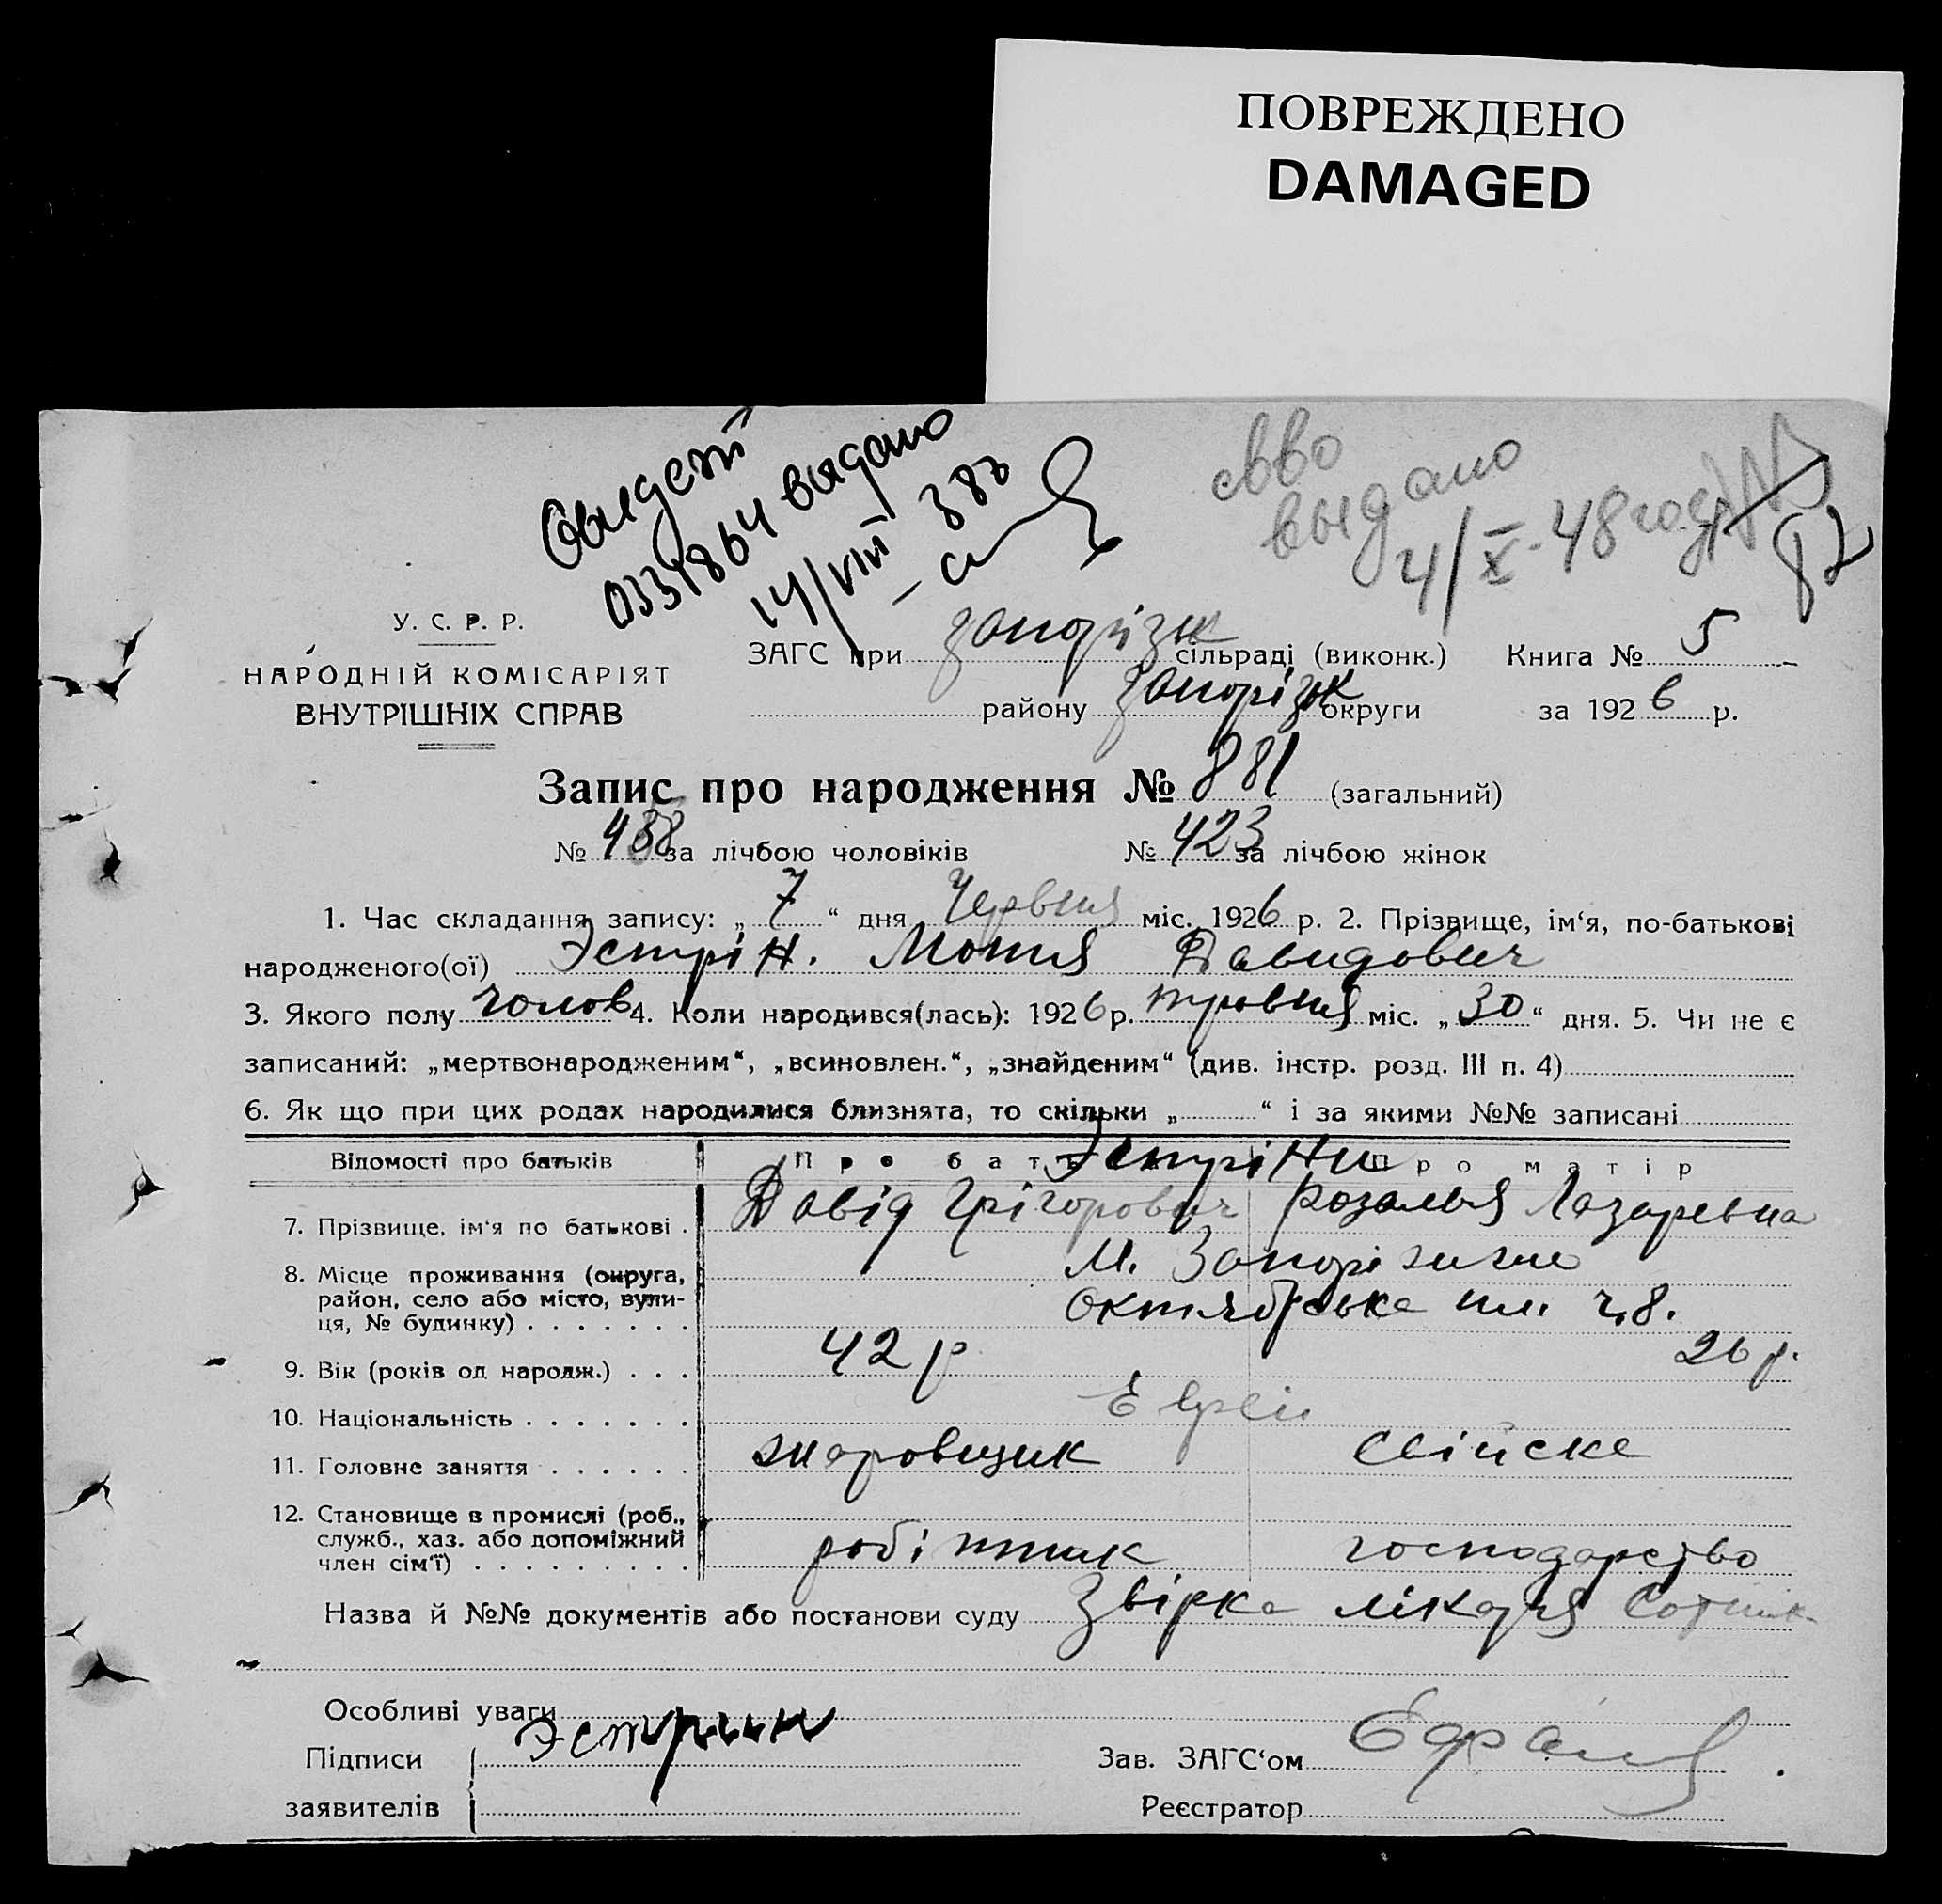 ПОВРЕЖДЕНО
DAMAGED
Свидет
0331864 выдано
14/VIII 38г
свво
выдано
4/X-48 года
82
У. С. Р. Р.
НАРОДНІЙ КОМІСАРІЯТ
ВНУТРІШНІХ СПРАВ
ЗАГС при Запорізк сільраді (виконк.) Книга № 5
району Запорізк округи за 1926 р.
Запис про народження № 881 (загальний)
№ 458 за лічбою чоловіків № 423 за лічбою жінок
1. Час складання запису: „ 7 “ дня Червня міс. 1926 р. 2. Прізвище, ім‘я, по-батькові
народженого(ої) Эстрін. Мотя Давидович
3. Якого полу чолов 4. Коли народився(лась): 1926 р. травня міс. „ 30 “ дня. 5. Чи не є
записаний: „мертвонародженим“, „всиновлен.“, „знайденим“ (див. інстр. розд. III п. 4)
6. Як що при цих родах народилися близнята, то скільки „ “ і за якими №№ записані
Відомості про батьків Про батька Эстріни Про матір
7. Прізвище, ім‘я по батькові . Давід Грігорович Розалья Лазаревна
8. Місце проживання (округа, М. Запоріжжє
район, село або місто, вули- Октябрська пл. ч. 8.
ця, № будинку) . . . . . . .
9. Вік (років од народж.) . . . 42 р 26 р.
10. Національність . . . . . . . Євреи
11. Головне заняття . . . . . . жаровщик Свійске
12. Становище в промислі (роб.,
служб., хаз. або допоміжний робітник господарство
член сім‘ї) . . . . . . . . .
Назва й №№ документів або постанови суду Звірка лікаря Сотник
Особливі уваги
Підписи Эстрин Зав. ЗАГС‘ом
заявителів Реєстратор